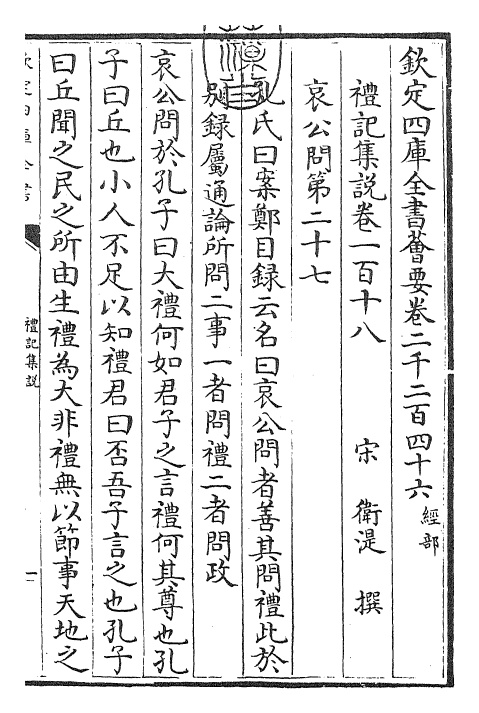 欽定四庫全書薈要卷二千二百四十六 經部
禮記集說卷一百十八
宋 衛湜 撰
哀公問第二十七
孔氏曰案鄭目録云名曰哀公問者善其問禮此於
別録屬通論所問二事一者問禮二者問政
哀公問於孔子曰大禮何如君子之言禮何其尊也孔
子曰丘也小人不足以知禮君曰否吾子言之也孔子
曰丘聞之民之所由生禮為大非禮無以節事天地之
欽定四庫全書
禮記集說
一